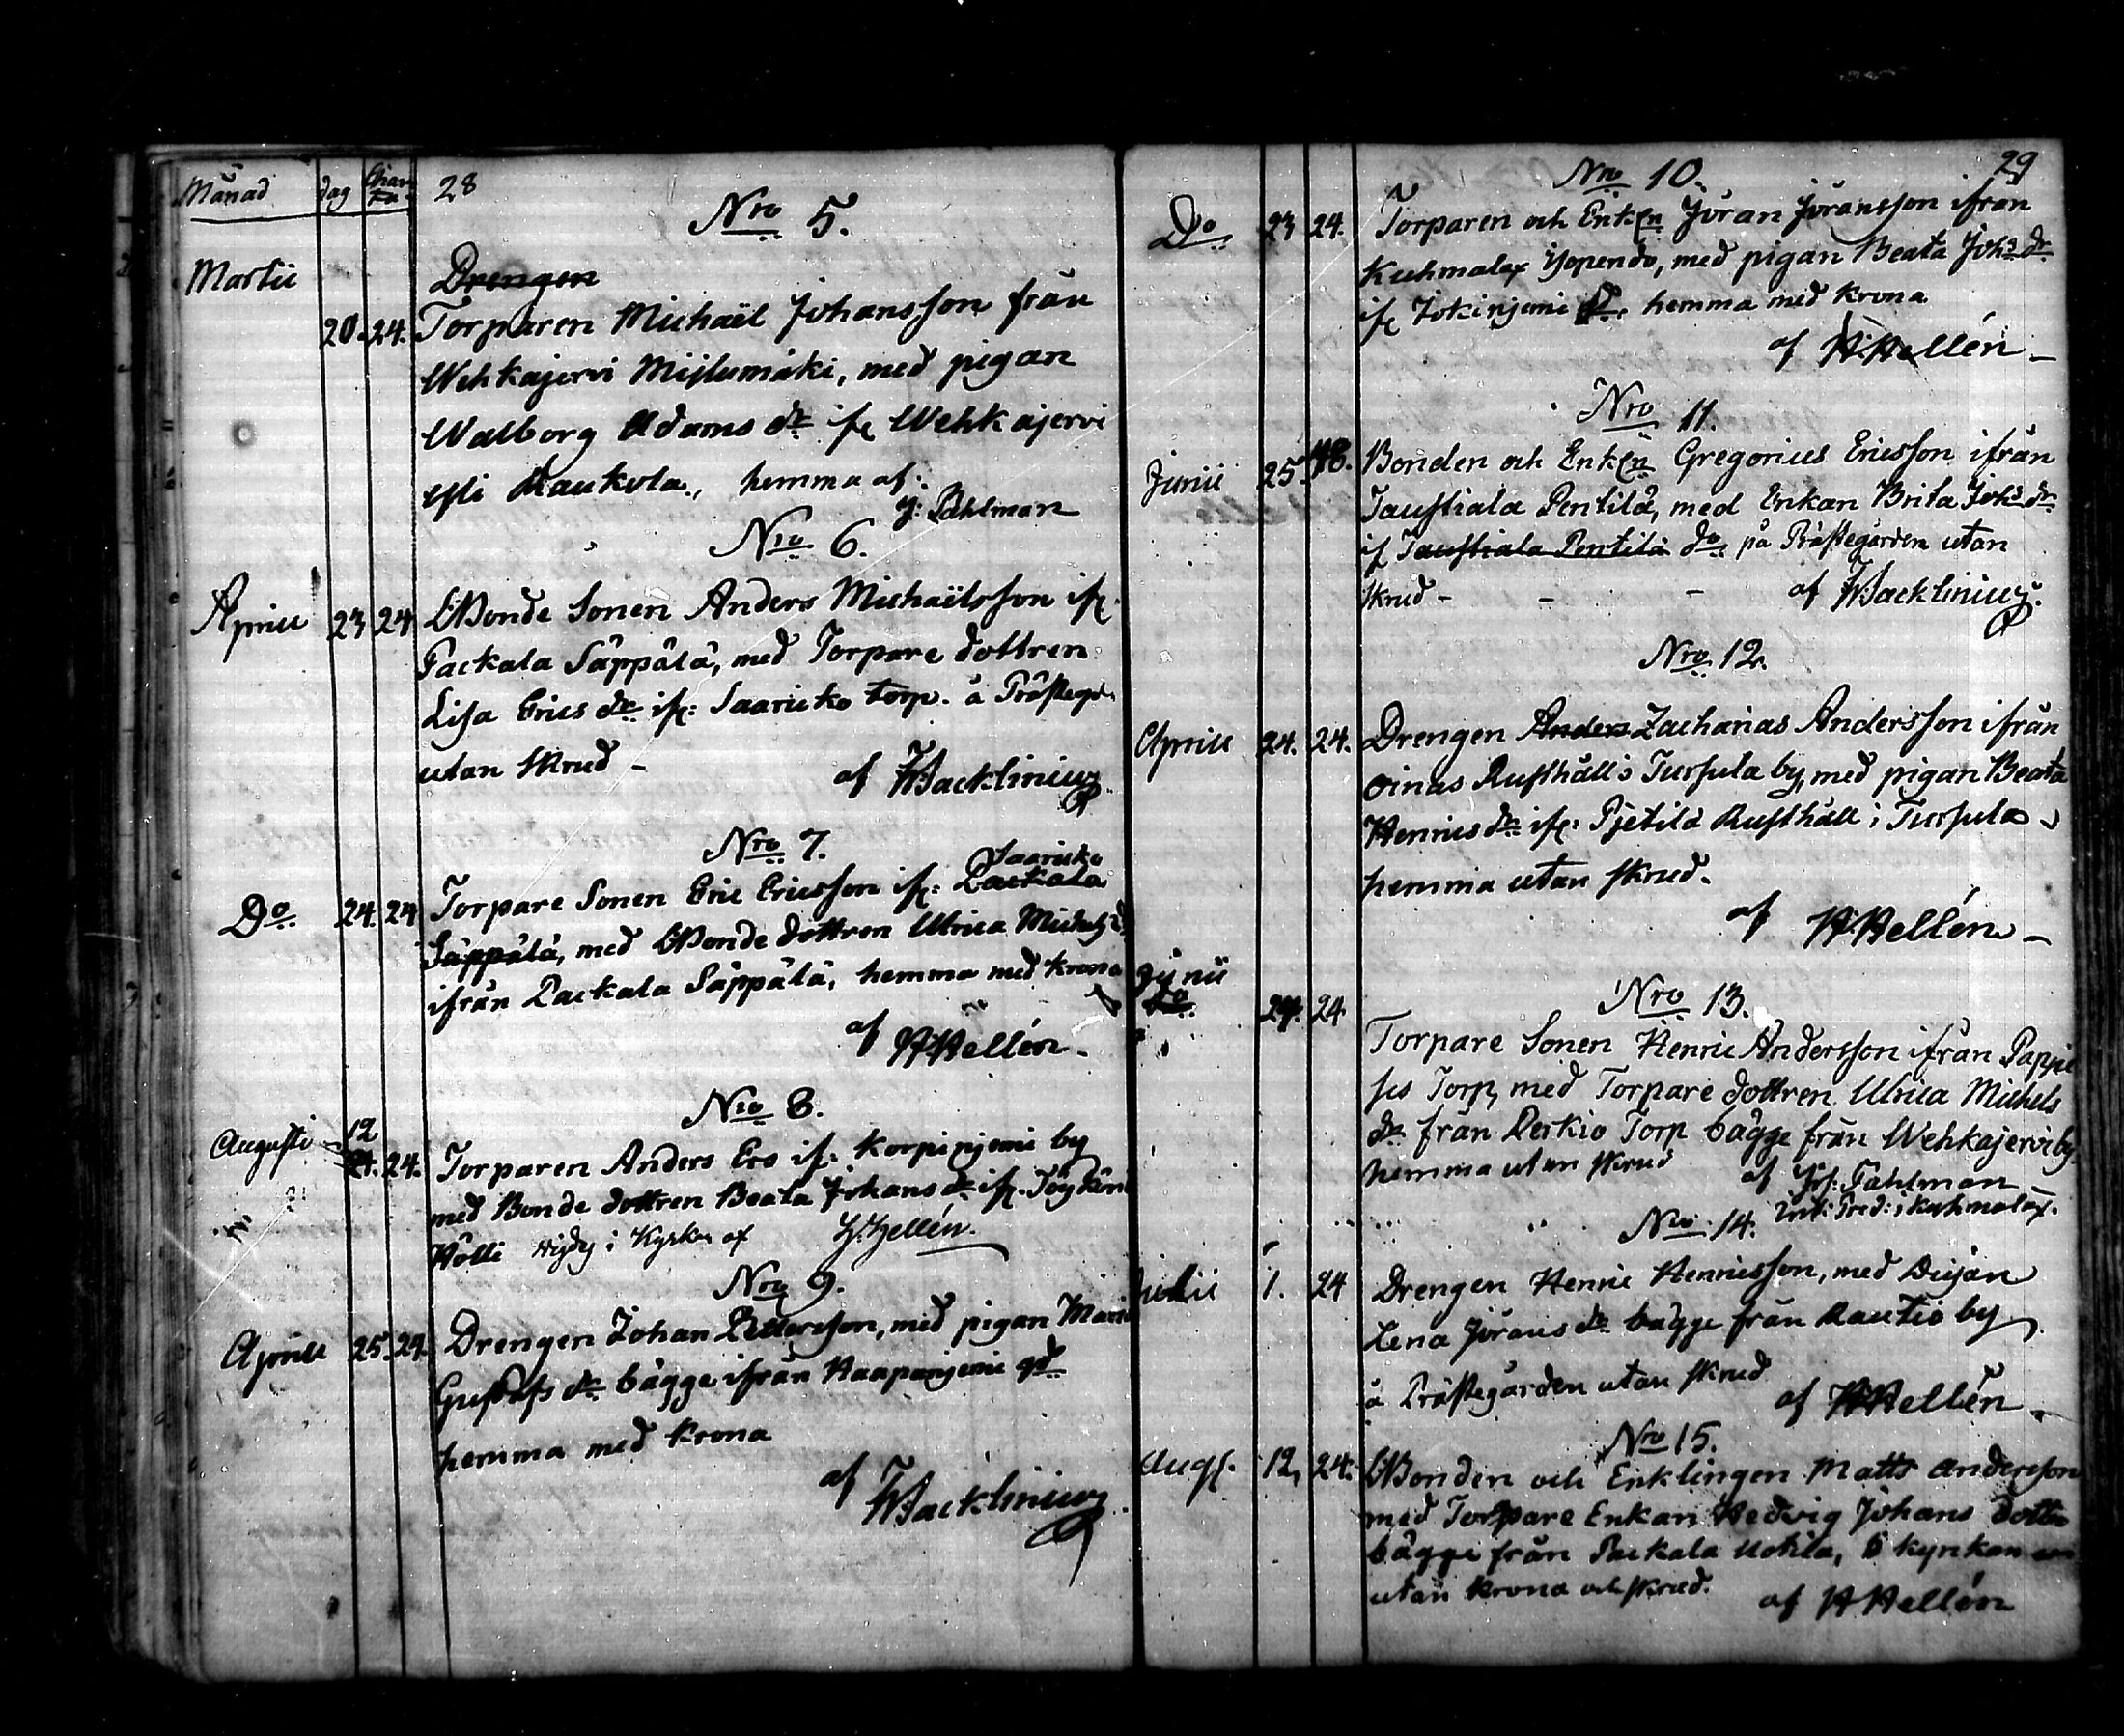 Månad dag Char: ta. 28
Nro 5.
Martii
Drengen
20. 24. Torparen Michaël Johansson från
Wehkajervi Mijlumäki, med pigan
Walborg Adams dr ifr Wehkajervi
Ysli Raukola, hemma af:
J: Pahlman
Nro 6.
Aprill 23 24 EBonde Sonen Anders Michaëlsson ifr.
Packala Säppälä, med Torpare dottren
Lisa Erics dr ifr: Saaricko torp. å Prästegd.
utan skrud -
af Wacklinius
Nro 7.
Saaricko
Do 24. 24 Torpare Sonen Eric Ericsson ifr: Packala
Säppälä, med EBonde dottren Ulrica Michels d.
ifrån Packala Säppälä, hemma med krona
af HHellén.
Nro 8.
12
Augusti 24. Torparen Anders Ers if: Korpinjemi by
med Bonde dottren Beata Johans dr ifr.
Hölli wigdes i Kyrkan af H:Hellén.
Nro 9.
Aprill 25. 24. Drengen Johan Pettersson, med pigan Maria
Gustafs dr bägge ifrån Haapanjemi gd
hemma med krona
af Wacklinius
29
Nro 10.
Do 23 24. Torparen och Enken Jöran Jöransson ifrån
Kuhmalax Yopendo, med pigan Beata Johs dr
ifr Jokinjemi hemma med krona
af HHellén -
Nro 11.
Junii 25. 48. Bonden och Enken Gregorius Ericsson ifrån
Taustiala Pentilä, med Enkan Brita Johs dr
if Taustiala Pentilä do, på Prästegården utan
skrud - - - af Wacklinius.
Nro 12.
Aprill 24. 24. Drengen Anders Zacharias Andersson ifrån
Oinas Rusthåll i Tursula by, med pigan Beata
Henrics dr ifr: Pjetilä Rusthåll i Tursula
hemma utan skrud.
af HHellén -
Junii
Do 24. 24.
Nro 13.
Torpare Sonen Henric Andersson ifrån Pappi
Torp, med Torpare dottren Ulrica Michels
dr från Perkio Torp bägge från Wehkajervi by
hemma utan skrud af J: Pahlman
Pred: i Kuhmalax.
Nro 14.
Julii 1. 24 Drengen Henric Henricsson, med Pigan
Lena Jörans dr bägge från Rautio by
å Prästegården utan skrud
af HHellén -
Nro 15.
Aug. 12, 24. EBonden och Enklingen Matts Andersson
med Torpare Enkan Hedvig Johans dotter
bägge från Packala Uotila, i kyrkan
utan krona och skrud. af HHellén